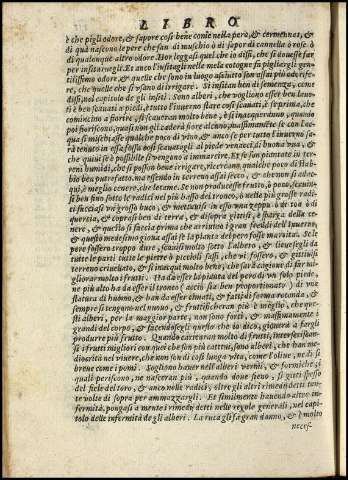 LIBRO
è che pigli odore, & sapore così bene come nella pera, & cermennes, &
di quà nascono le pere che san di muschio ò di sapor di cannella ò rose ò
di qualunque altro odore. Hor legga si quel che io dissi, che si douesse far
per insitaruegli. Et anco l'insitagli nelle mele cotogne fa pigliar gli gen-
tilissimo odore, & quelle che sono in luogo asciutto son assai più odorife-
re, che quelle che si vsano di irrigare. Si insitan ben di semenza, come
dissi, nel capitolo de gli insiti. Sono alberi, che vogliono esser ben lauo-
ti è ben scauati a piedi, è tutto l'inuerno stare così scauati, è se prima, che
comincino a fiorire, si scaueran molto bene, è si inacqueranno, quando
poi fioriscono, quasi non gli caderà fiore alcuno, massimamente se con l'ac-
qua si mischiasse qualche poco di vino, & anco se per tutto l'inuerno sa-
rà tenuto in essa fossa così scauatagli al piede vernacci di buona vua, &
che quiui se è possibile si vengano a immarcire. Et se sun piantate in ter-
reni humidi, che si posson bene irrigare, ricercano qualche poco di stab-
bio ben putrefatto, ma essendo in terreno assai secco, & che non si adac-
qui, è meglio cenere, che letame. Se non producesse frutto, ò poco, scauin-
si ben sino sotto le radici nel più basso del tronco, ò nelle più grosse radi-
ci facciasi vn grosso buco, & mettauisi in esso vna zeppa ò di tea ò di
quercia, & coprasi ben di terra, & di sopra gittisi, è sparga della ce-
nere, & questo si faccia prima che arriuino i gran freddi dell'Inuerno
& questo medesimo gioua assai se la pianta del pero fosse marcita. Se le
pere fussero troppo dure, scauisi molto sotto l'albero, & lieuesegli da
tutte le parti tutte le pietre è piccioli sassi, che vi fossero, & gittiuisi
terreno criuellato, & si inacqui molto bene, che sarà cagione di far mi-
gliorar molto i frutti. Ha da esser la pianta del pero di vn solo piede,
ne più alto ha da esser il tronco (acciò sia ben proportionato) di vna
statura di huomo, & han da esser cimati, & fatti di forma rotonda, &
sempre si tengono nel mezzo, & fruttificheran più è meglio, che que-
sti alberi, per la maggior parte, non sono forti, & massimamente i
grandi del corpo, & facendosegli questo che io dico, giouerà a fargli
produrre più frutto. Quando caricano molto di frutti, interserischan-
si i frutti migliori con que' che son più cattiui, sono alberi, che han me-
diocrità nel viuere, che non son di così lunga vita, come l'oliue, ne di sì
breue come i pomi. Sogliono hauer nell'alberi vermi, & formiche, i
quali periscono, ne nasceran più, quando doue sieno, si getti spesso
del fiele di toro, & anco nelle radici, oltre gli altri rimedij detti tan-
te volte di sopra per ammazzargli. Et similmente hauendo altre in-
fermità, pongasi a mente i rimedij detti nelle regole generali, nel capi-
tolo delle infermità de gli alberi. La ruca gli fa gran danno, & è molto
neces-